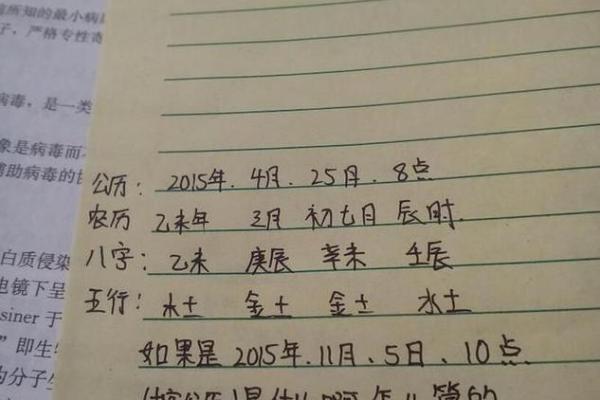 所知的最小病
子，严格专性寄
病毒，是一类
象是病毒而
助病毒的
白质侵染
电镜下呈
siner 于
”即生
为分子生
公历：2015年.4月.25日.8点
农历 乙未年 三月 初七日 辰时.
八字：乙未 庚辰 辛未 壬辰
五行：木土 金土 金土 水土
如果是 2015年.11月、5日、10点